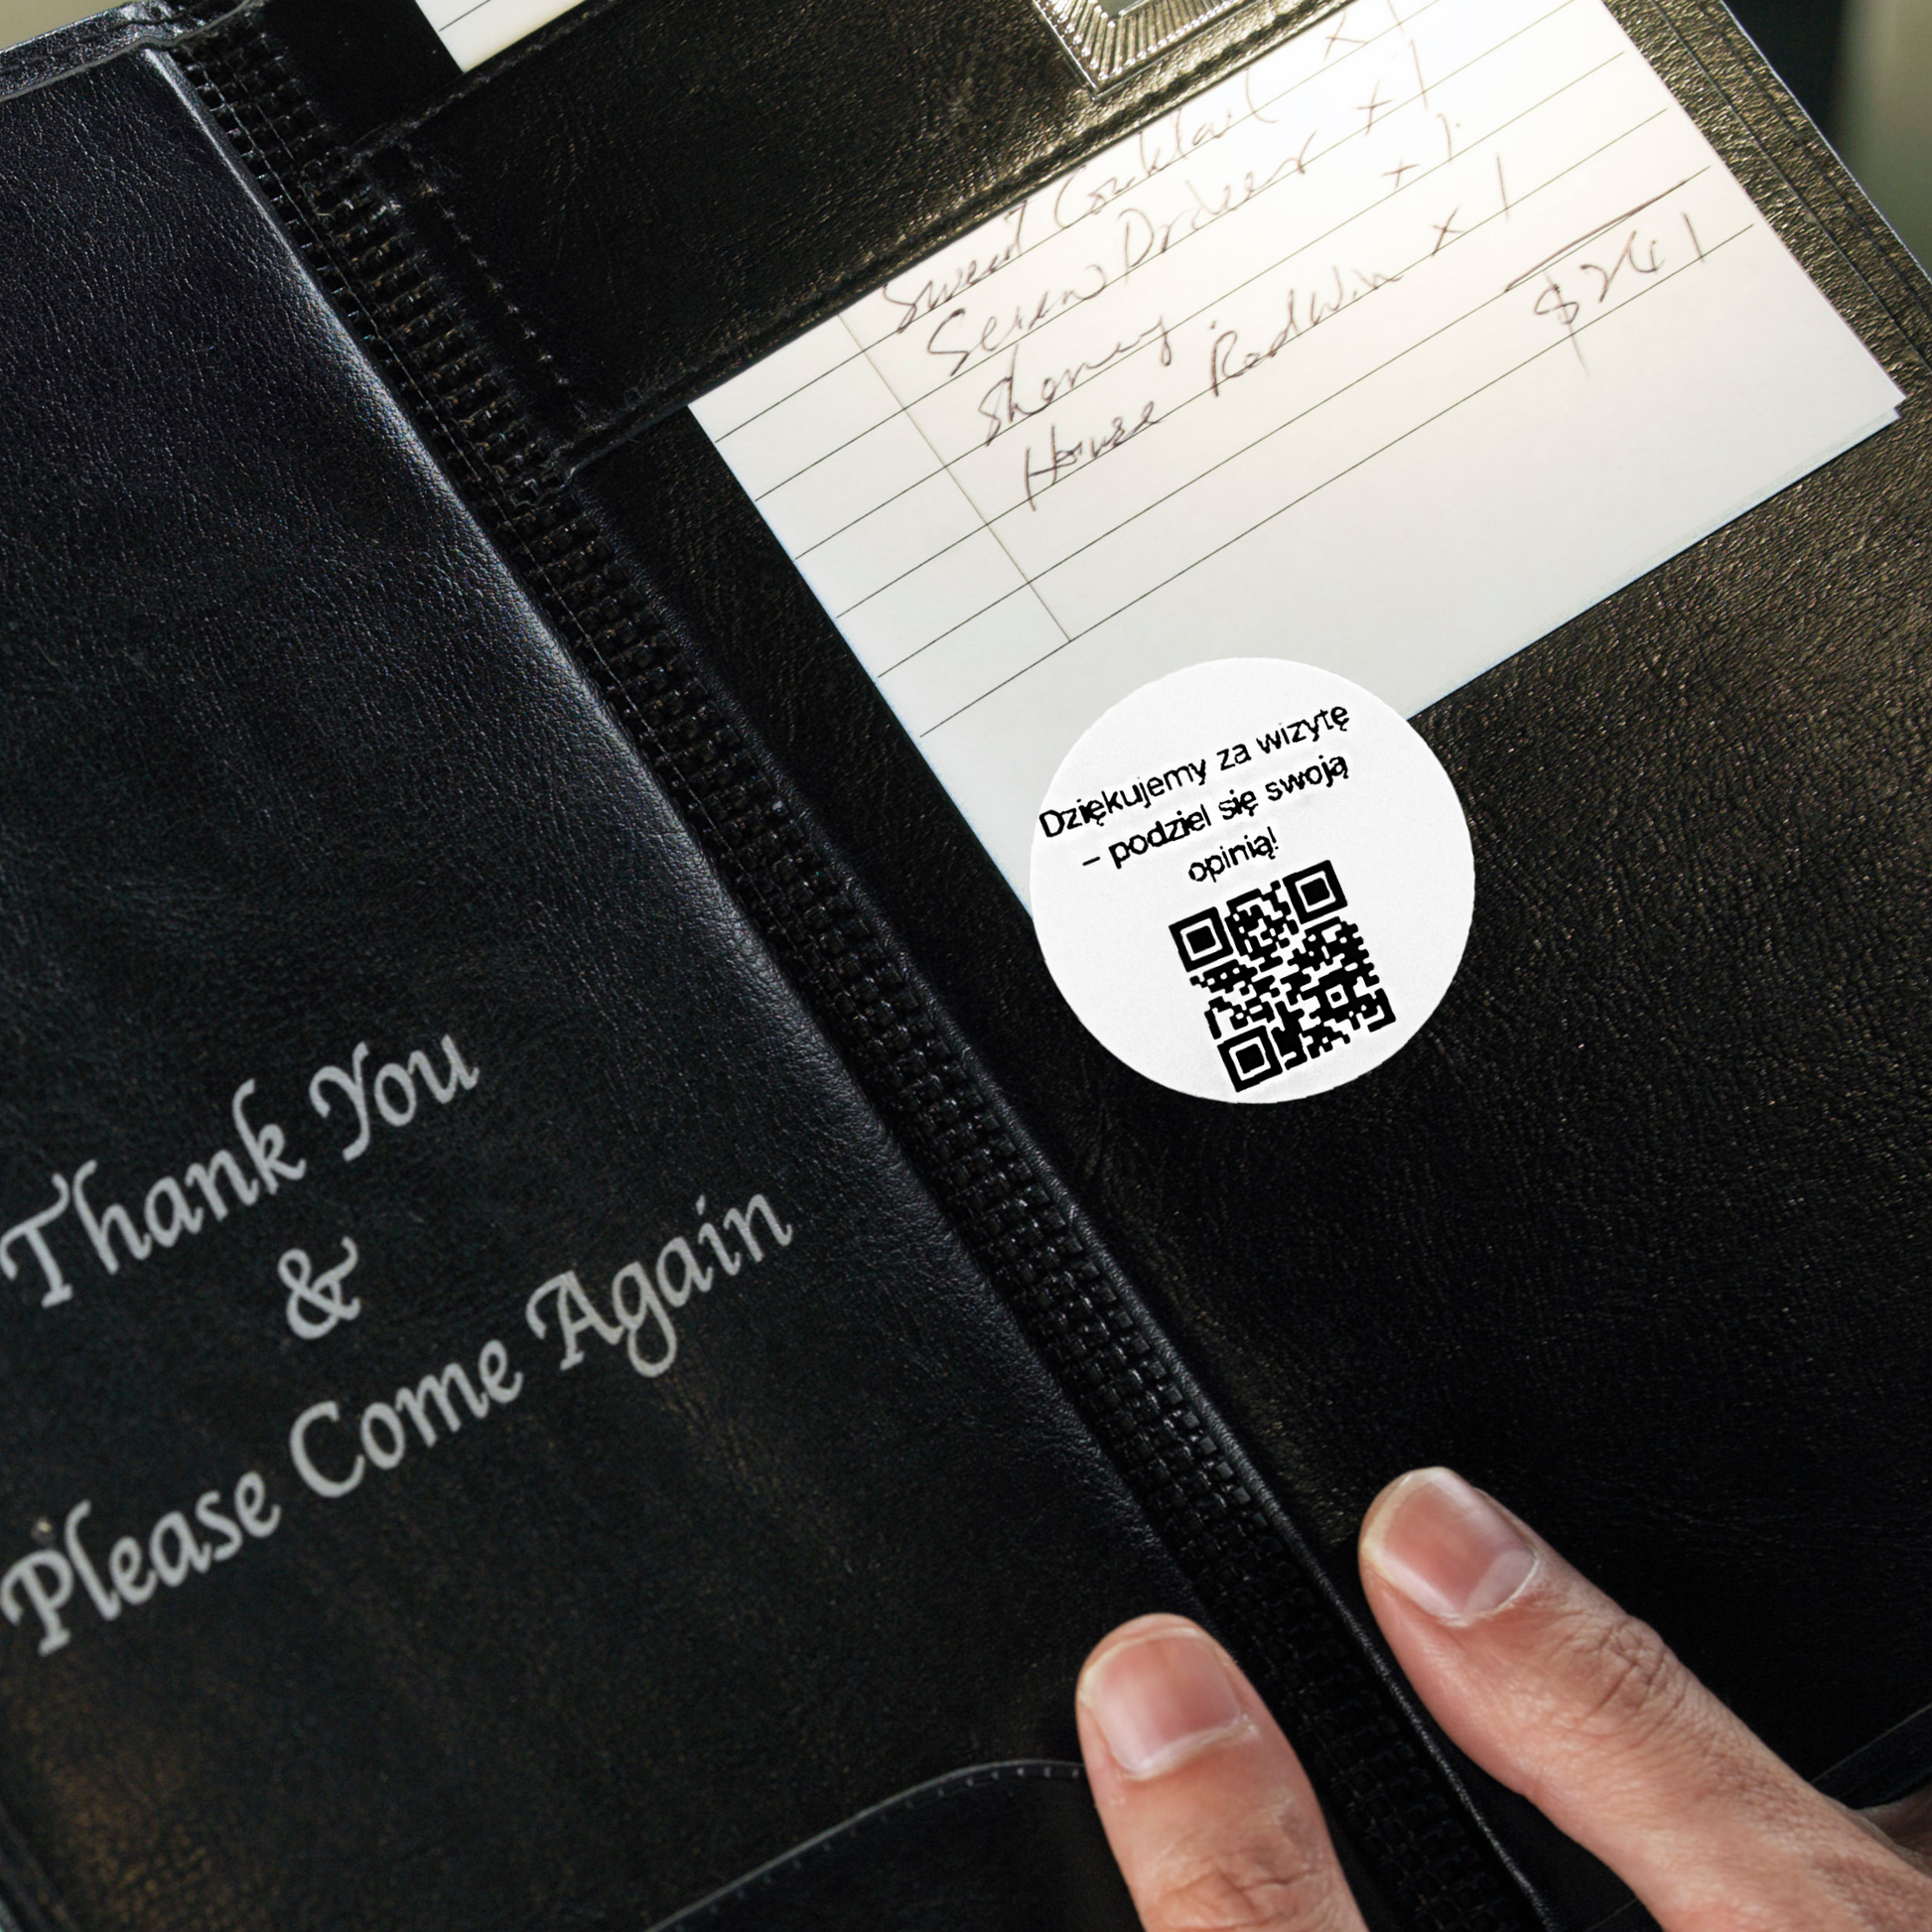 Sweet Cocktail x 1
Screw Drdeer x 1
Sherry x 1
House Redwin x 1
$241
Dziękujemy za wizytę
– podziel się swoją
opinią!
Thank You
&
Please Come Again